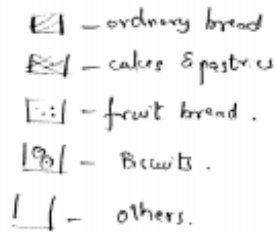 - ordnary bread
- cakes & pastries
- fruit bread.
- Biscuits.
- others.